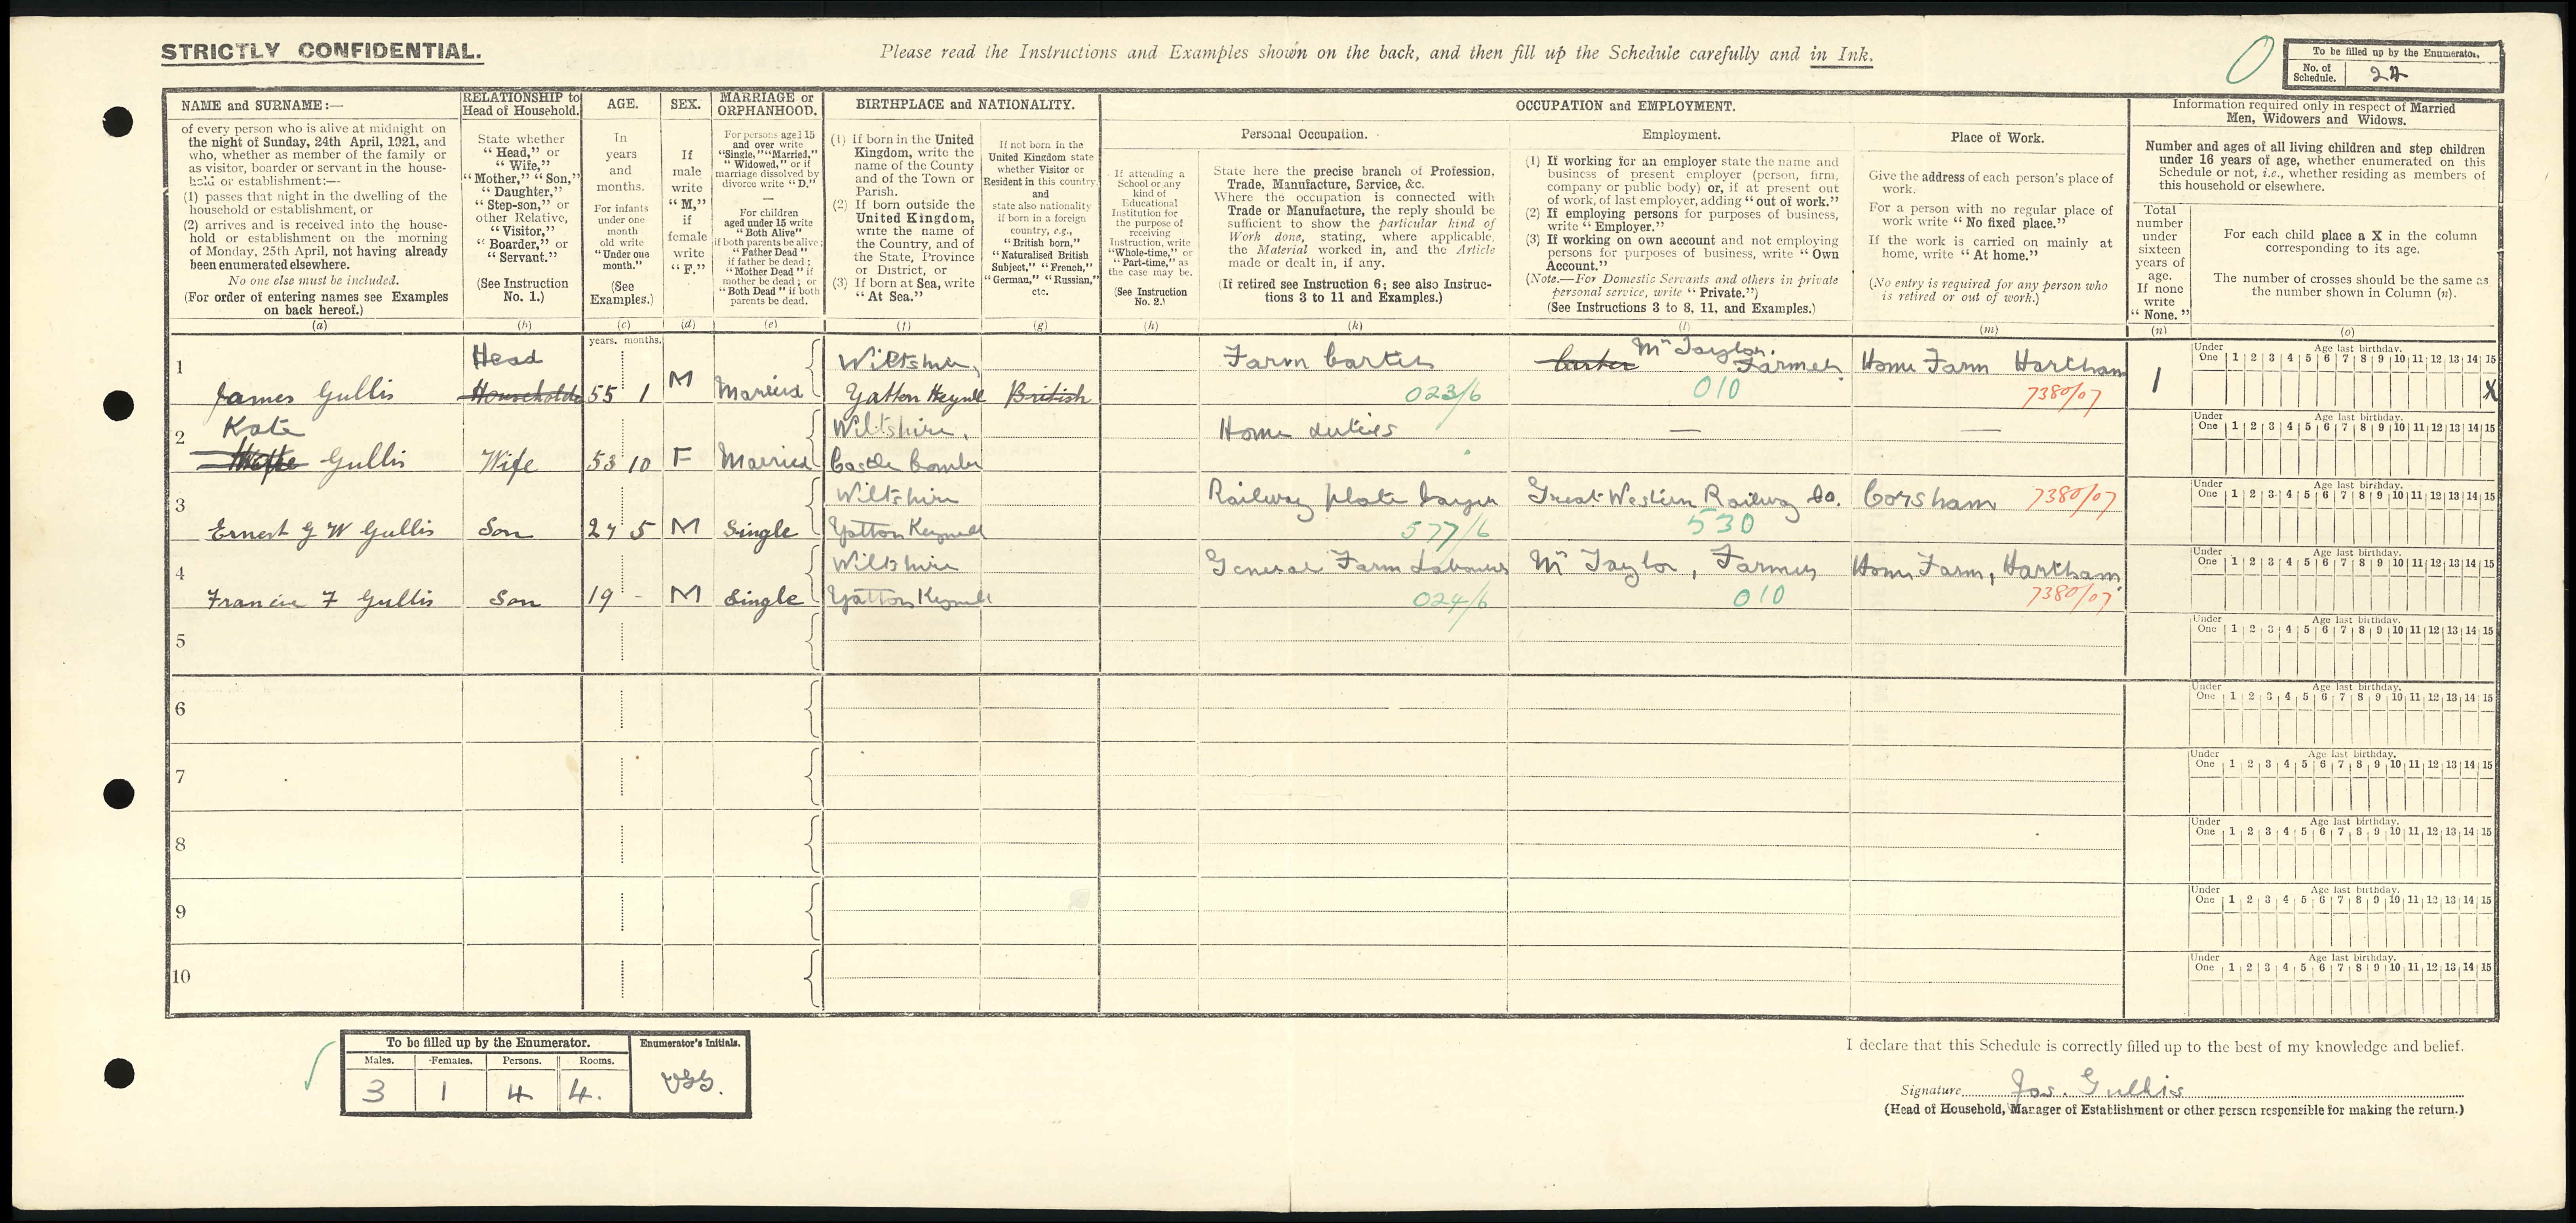 STRICTLY CONFIDENTIAL.
Please read the Instructions and Examples shown on the back, and then fill up the Schedule carefully and in Ink.
0
To be filled up by the Enumerator.
No. of Schedule. 24
NAME and SURNAME:—
of every person who is alive at midnight on
the night of Sunday, 24th April, 1921, and
who, whether as member of the family or
as visitor, boarder or servant in the house-
hold or establishment:—
(1) passes that night in the dwelling of the
household or establishment, or
(2) arrives and is received into the house-
hold or establishment on the morning
of Monday, 25th April, not having already
been enumerated elsewhere.
No one else must be included.
(For order of entering names see Examples
on back hereof.)
(a)
RELATIONSHIP to
Head of Household.
State whether
"Head," or
"Wife,"
"Mother," "Son,"
"Daughter,"
"Step-son," or
other Relative,
"Visitor,"
"Boarder," or
"Servant."
(See Instruction
No. 1.)
(b)
AGE.
In
years
and
months.
For infants
under one
month
old write
"Under one
month."
(See
Examples.)
(c)
SEX.
If
male
write
"M,"
if
female
write
"F."
(d)
MARRIAGE or
ORPHANHOOD.
For persons aged 15
and over write
"Single," "Married,"
"Widowed," or if
marriage dissolved by
divorce write "D."
—
For children
aged under 15 write
"Both Alive"
if both parents be alive;
"Father Dead"
if father be dead;
"Mother Dead" if
mother be dead; or
"Both Dead" if both
parents be dead.
(e)
BIRTHPLACE and NATIONALITY.
(1) If born in the United
Kingdom, write the
name of the County
and of the Town or
Parish.
(2) If born outside the
United Kingdom,
write the name of
the Country, and of
the State, Province
or District, or
(3) If born at Sea, write
"At Sea."
(f)
If not born in the
United Kingdom state
whether Visitor or
Resident in this country,
and
state also nationality
if born in a foreign
country, e.g.,
"British born,"
"Naturalised British
Subject," "French,"
"German," "Russian,"
etc.
(g)
OCCUPATION and EMPLOYMENT.
If attending a
School or any
kind of
Educational
Institution for
the purpose of
receiving
Instruction, write
"Whole-time," or
"Part-time," as
the case may be.
(See Instruction
No. 2.)
(h)
Personal Occupation.
State here the precise branch of Profession,
Trade, Manufacture, Service, &c.
Where the occupation is connected with
Trade or Manufacture, the reply should be
sufficient to show the particular kind of
Work done, stating, where applicable,
the Material worked in, and the Article
made or dealt in, if any.
(If retired see Instruction 6; see also Instruc-
tions 3 to 11 and Examples.)
(k)
Employment.
(1) If working for an employer state the name and
business of present employer (person, firm,
company or public body) or, if at present out
of work, of last employer, adding "out of work."
(2) If employing persons for purposes of business,
write "Employer."
(3) If working on own account and not employing
persons for purposes of business, write "Own
Account."
(Note.—For Domestic Servants and others in private
personal service, write "Private.")
(See Instructions 3 to 8, 11, and Examples.)
(l)
Place of Work.
Give the address of each person's place of
work.
For a person with no regular place of
work write "No fixed place."
If the work is carried on mainly at
home, write "At home."
(No entry is required for any person who
is retired or out of work.)
(m)
Information required only in respect of Married
Men, Widowers and Widows.
Number and ages of all living children and step children
under 16 years of age, whether enumerated on this
Schedule or not, i.e., whether residing as members of
this household or elsewhere.
Total
number
under
sixteen
years of
age.
If none
write
"None."
(n)
For each child place a X in the column
corresponding to its age.
The number of crosses should be the same as
the number shown in Column (n).
(o)
years. months.
1
James Gullis
Head
Household
55 1
M
Married
Wiltshire,
Yatton Keynell
British
Farm Carter
023/6
Carter
Mr Taylor.
Farmer.
010
Home Farm Hartham
7380/07
1
Under One
Age last birthday.
1 2 3 4 5 6 7 8 9 10 11 12 13 14 15
X
2
Kate
Gullis
Wife
53 10
F
Married
Wiltshire,
Castle Combe
Home duties
—
—
Under One
Age last birthday.
1 2 3 4 5 6 7 8 9 10 11 12 13 14 15
3
Ernest G W Gullis
Son
27 5
M
Single
Wiltshire
Yatton Keynell
Railway plate layer
577/6
Great Western Railway Co.
530
Corsham
7380/07
Under One
Age last birthday.
1 2 3 4 5 6 7 8 9 10 11 12 13 14 15
4
Francis F Gullis
Son
19 -
M
Single
Wiltshire
Yatton Keynell
General Farm Labourer
024/6
Mr Taylor, Farmer
010
Home Farm, Hartham
7380/07
Under One
Age last birthday.
1 2 3 4 5 6 7 8 9 10 11 12 13 14 15
5
Under One
Age last birthday.
1 2 3 4 5 6 7 8 9 10 11 12 13 14 15
6
Under One
Age last birthday.
1 2 3 4 5 6 7 8 9 10 11 12 13 14 15
7
Under One
Age last birthday.
1 2 3 4 5 6 7 8 9 10 11 12 13 14 15
8
Under One
Age last birthday.
1 2 3 4 5 6 7 8 9 10 11 12 13 14 15
9
Under One
Age last birthday.
1 2 3 4 5 6 7 8 9 10 11 12 13 14 15
10
Under One
Age last birthday.
1 2 3 4 5 6 7 8 9 10 11 12 13 14 15
To be filled up by the Enumerator.
Males. Females. Persons. Rooms.
3 1 4 4.
Enumerator's Initials.
I declare that this Schedule is correctly filled up to the best of my knowledge and belief.
Signature Jas. Gullis
(Head of Household, Manager of Establishment or other person responsible for making the return.)